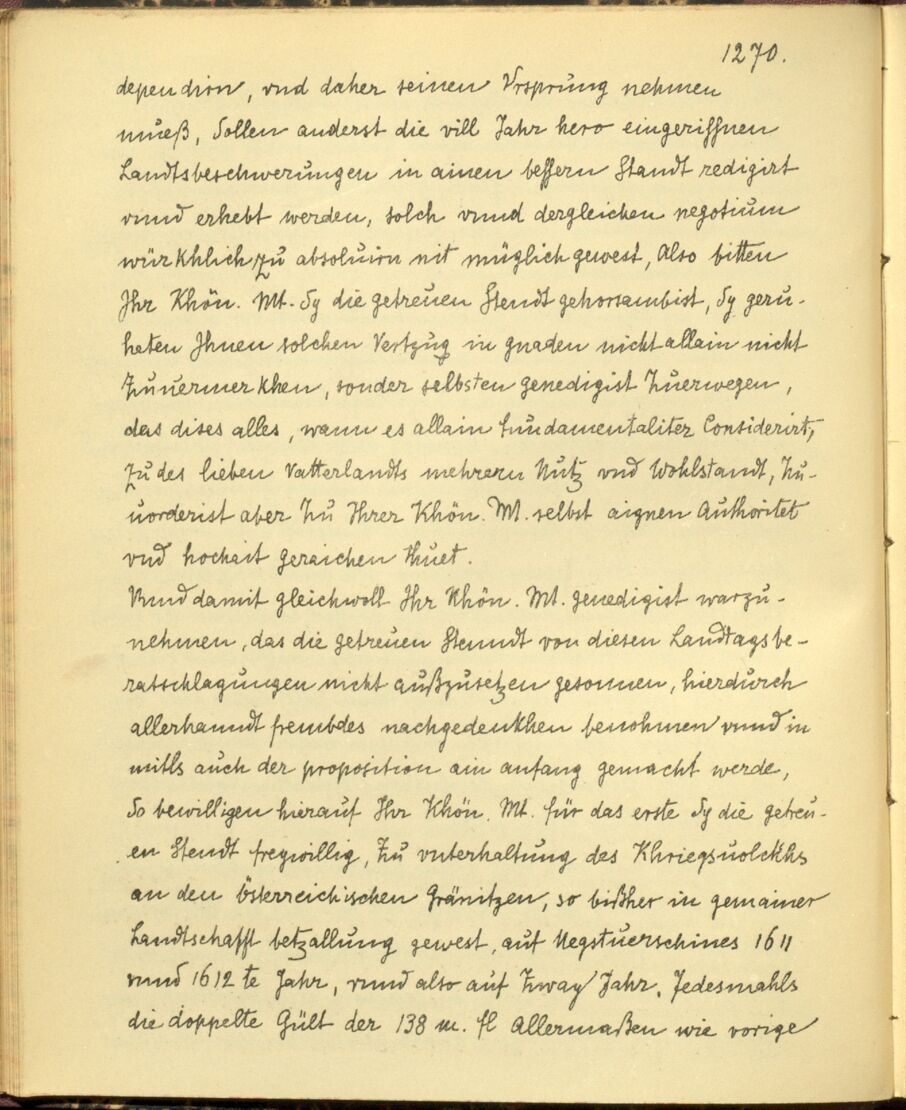 1270.
dependirn, vnd daher seinen Vrsprung nehmen
mueß, Sollen anderst die vill Jahr hero eingerißnen
Landtsbeschwerungen in ainen beßern Standt redigirt
vnnd erhebt werden, solch vnnd dergleichen negotium
würkhlich zu absoluirn nit müglich gewest, Also bitten
Ihr Khön. Mt. Sy die getreuen Stendt gehorsambist, Sy geru-
heten Ihnen solchen Vertzug in gnaden nicht allain nicht
Zuuermerkhen, sonder selbsten genedigist Zuerwegen,
das dises alles, wann es allain fundamentaliter Considerirt,
Zu des lieben Vatterlandts mehrern Nutz vnd Wohlstandt, Zu-
uorderist aber Zu Ihrer Khön. Mt. selbst aignen Authoritet
vnd hochait geraichen thuet.
Vnnd damit gleichwoll Ihr Khön. Mt. genedigist warzu-
nehmen, das die getreuen Stenndt von diesen Landtagsbe-
ratschlagungen nicht außzusetzen gesonnen, hierdurch
allerhanndt frembdes nachgedenkhen benohmen vnnd in
mitls auch der proposition ain anfang gemacht werde,
So bewilligen hierauf Ihr Khön. Mt. für das erste Sy die getreu-
en Stendt freywillig, Zu vnterhaltung des Khriegsuolckhs
an den Österreichischen Gränitzen, so bißher in gemainer
Landtschafft betzallung gewest, auf Negstuerschines 1611
vnnd 1612 te Jahr, vnnd also auf Zway Jahr, Jedesmahls
die doppelte Gült der 138 m. fl Allermaßen wie vorige